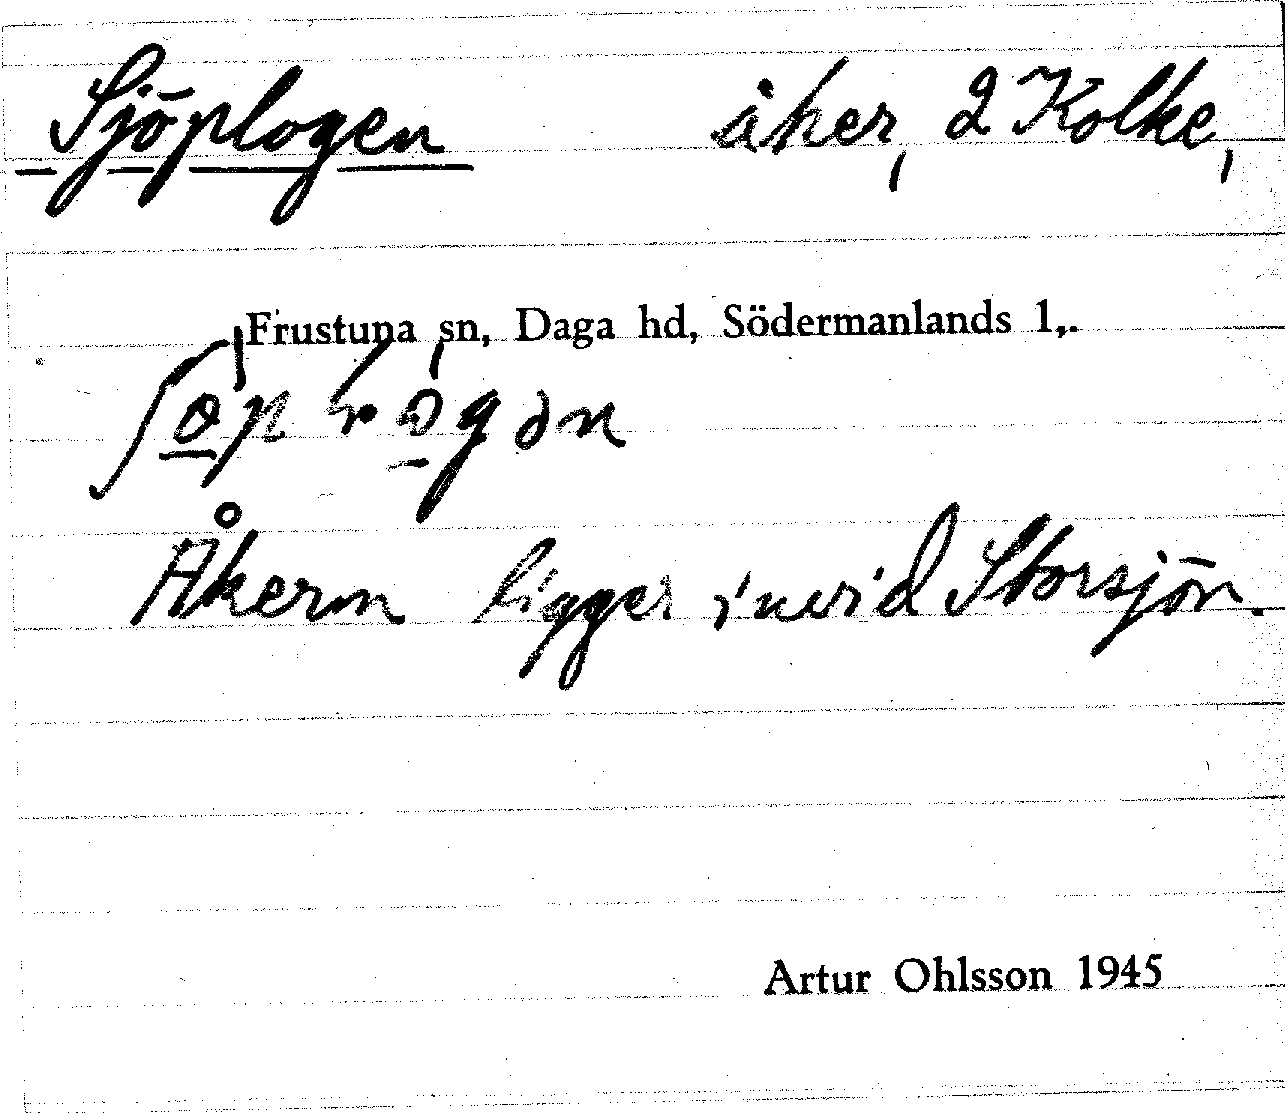 Sjöplogen åker, 2 Kolke,
Frustuna sn, Daga hd, Södermanlands l,.
Åkern ligger invid Storsjön.
Artur Ohlsson 1945